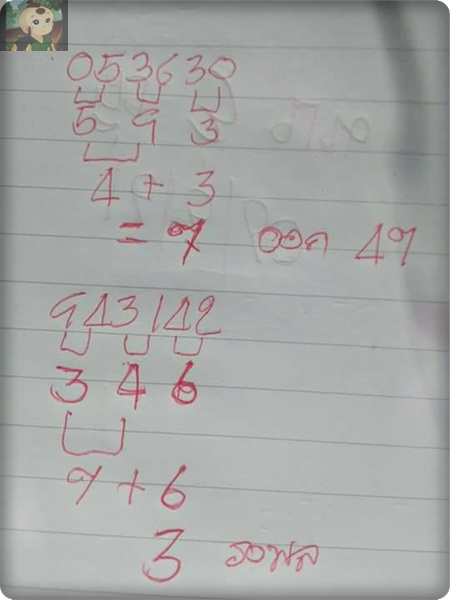 053630
5 9 3
4 + 3
= 7 ออก 47
943142
3 4 6
7 + 6
3 รอผล